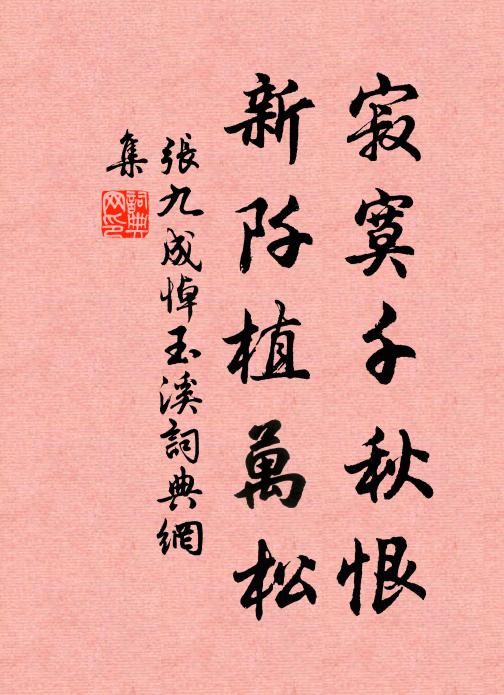 寂寞千秋恨
新阡植萬松
張九成悼玉溪詞典網
集
詞典网印